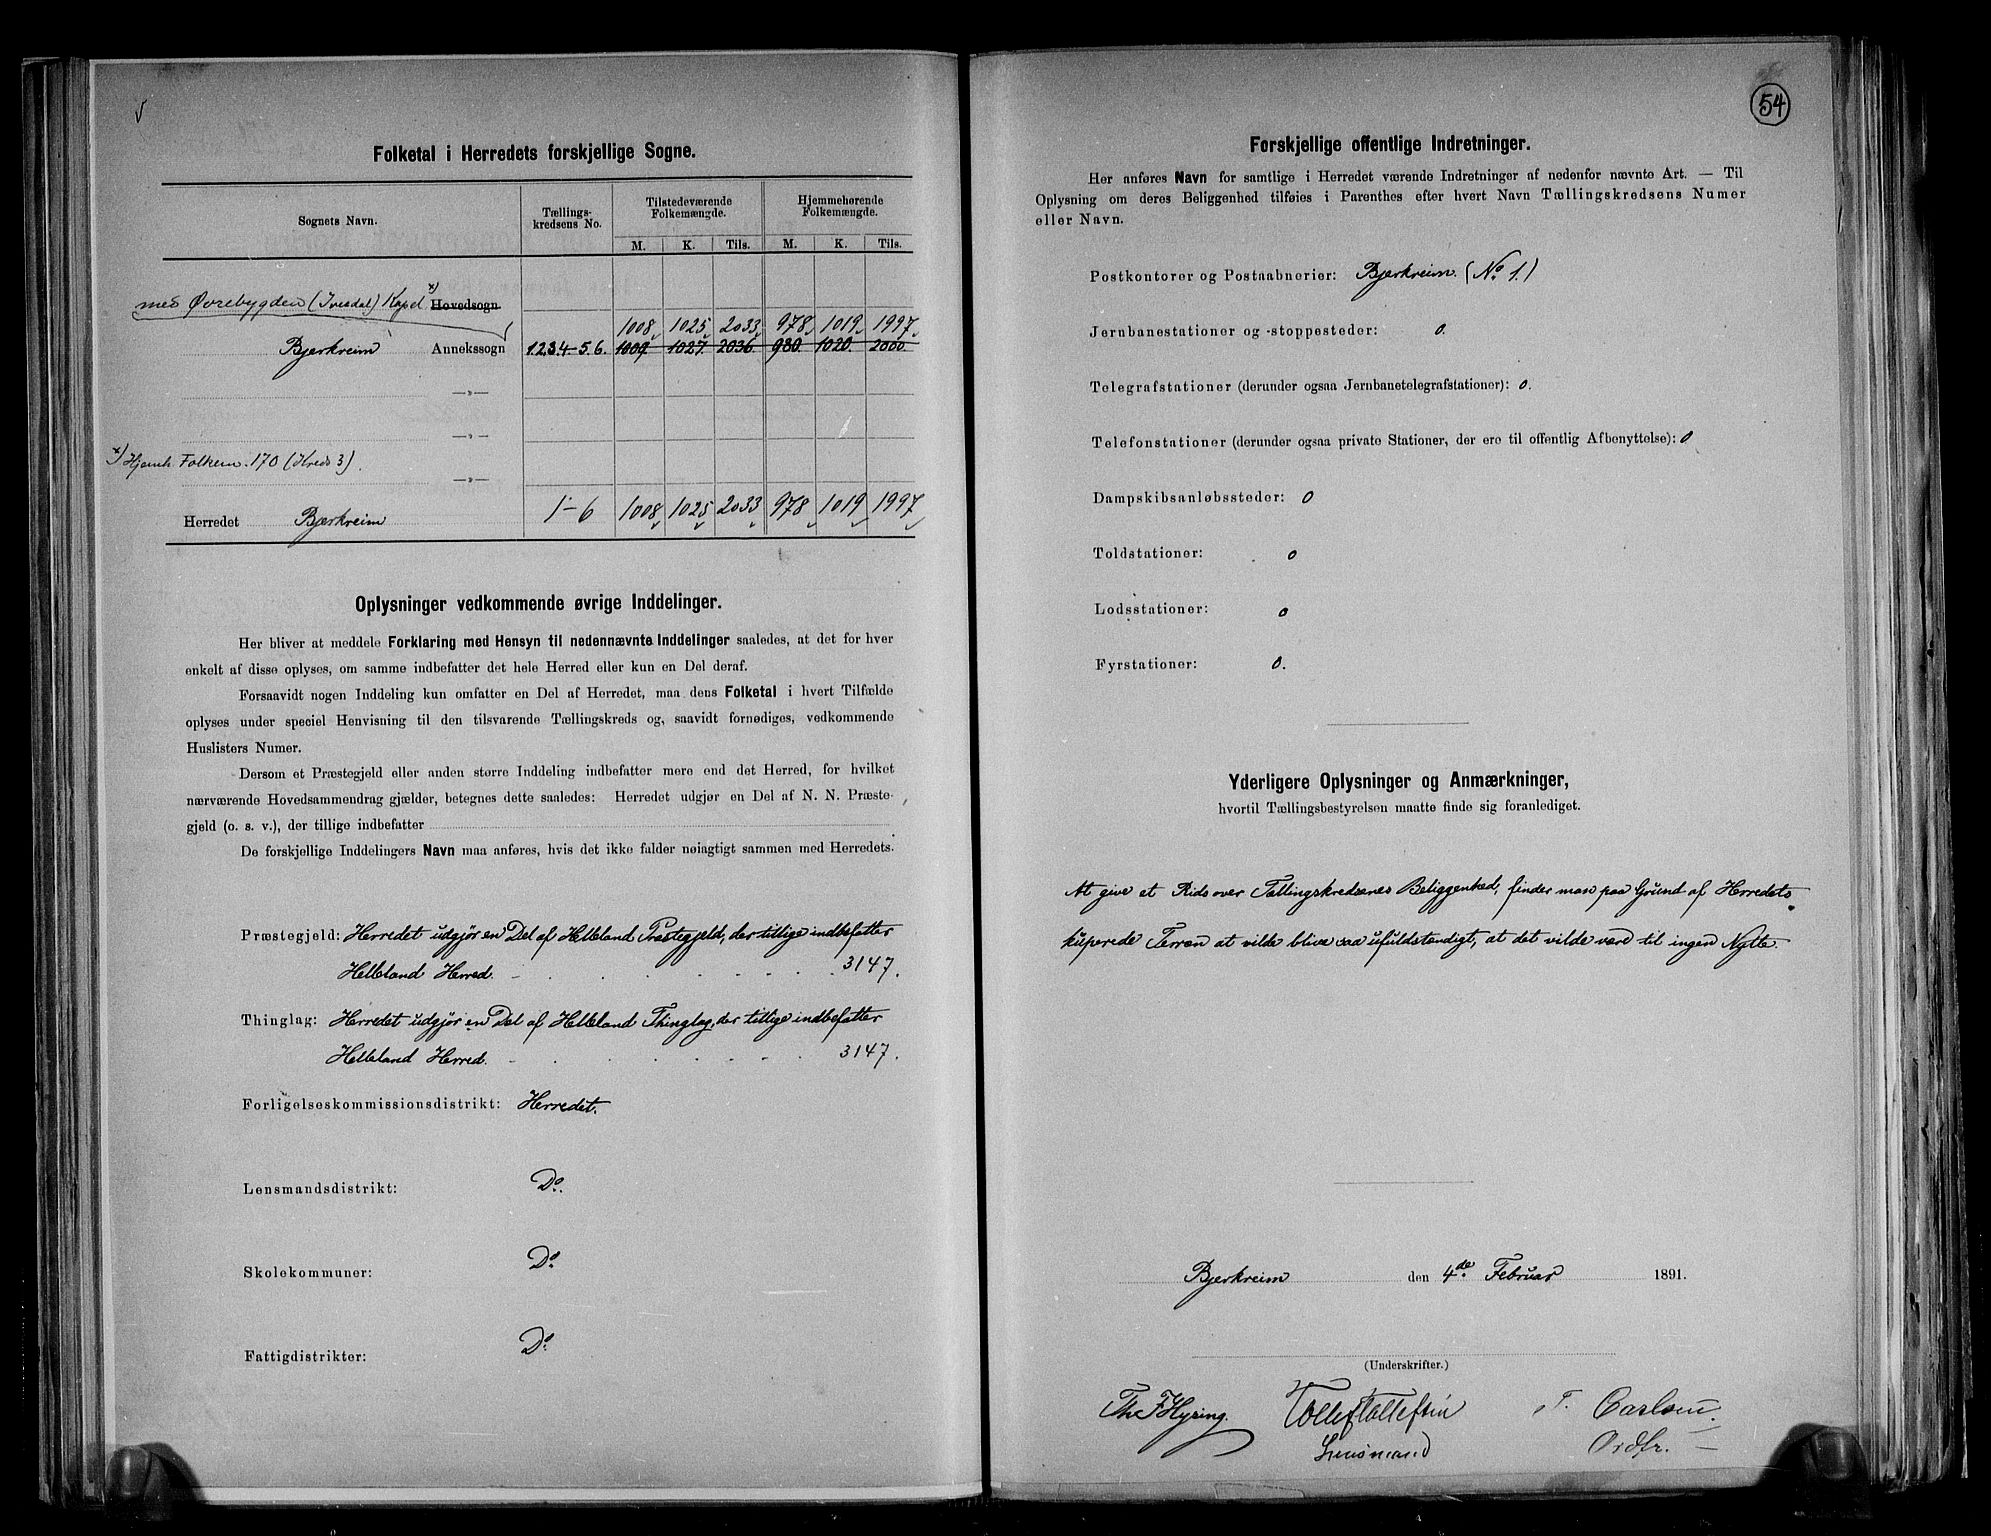 Folketal i Herredets forskjellige Sogne.
Sognets Navn. Tællings-kredsens No. Tilstedeværende Folkemængde. Hjemmehørende Folkemængde.
M. K. Tils. M. K. Tils.
med Øvrebygden (Ivesdal) Kapel x) Hovedsogn
1008 1025 2033 978 1019 1997
Bjerkreim Annekssogn 1.2.3.4-5.6. 1009 1027 2036 980 1020 2000
—„—
—„—
x) Hjemh. Folkem. 170 (Kreds 3).
—„—
Herredet Bjerkreim 1-6 1008 1025 2033 978 1019 1997
Oplysninger vedkommende øvrige Inddelinger.
Her bliver at meddele Forklaring med Hensyn til nedennævnte Inddelinger saaledes, at det for hver
enkelt af disse oplyses, om samme indbefatter det hele Herred eller kun en Del deraf.
Forsaavidt nogen Inddeling kun omfatter en Del af Herredet, maa dens Folketal i hvert Tilfælde
oplyses under speciel Henvisning til den tilsvarende Tællingskreds og, saavidt fornødiges, vedkommende
Huslisters Numer.
Dersom et Præstegjeld eller anden større Inddeling indbefatter mere end det Herred, for hvilket
nærværende Hovedsammendrag gjælder, betegnes dette saaledes: Herredet udgjør en Del af N. N. Præste-
gjeld (o. s. v.), der tillige indbefatter
De forskjellige Inddelingers Navn maa anføres, hvis det ikke falder nøiagtigt sammen med Herredets.
Præstegjeld: Herredet udgjør en Del af Helleland Præstegjeld, der tillige indbefatter
Helleland Herred. 3147.
Thinglag: Herredet udgjør en Del af Helleland Thinglag, der tillige indbefatter
Helleland Herred. 3147.
Forligelseskommissionsdistrikt: Herredet.
Lensmandsdistrikt: Do.
Skolekommuner: Do
Fattigdistrikter: Do
54
Forskjellige offentlige Indretninger.
Her anføres Navn for samtlige i Herredet værende Indretninger af nedenfor nævnte Art. — Til
Oplysning om deres Beliggenhed tilføies i Parenthes efter hvert Navn Tællingskredsens Numer
eller Navn.
Postkontorer og Postaabnerier: Bjerkreim (No 1.)
Jernbanestationer og -stoppesteder: 0.
Telegrafstationer (derunder ogsaa Jernbanetelegrafstationer): 0.
Telefonstationer (derunder ogsaa private Stationer, der ere til offentlig Afbenyttelse): 0
Dampskibsanløbssteder: 0
Toldstationer: 0
Lodsstationer: 0
Fyrstationer: 0.
Yderligere Oplysninger og Anmærkninger,
hvortil Tællingsbestyrelsen maatte finde sig foranlediget.
At give et Rids over Tællingskredsenes Beliggenhed, finder man paa Grund af Herredets
kuperede Terræn at vilde blive saa ufuldstændigt, at det vilde være til ingen Nytte.
Bjerkreim den 4de Februar 1891.
(Underskrifter.)
Th. F. Hysing. Tollef Tollefsen T. Carlsen
Lensmand Ordfr.